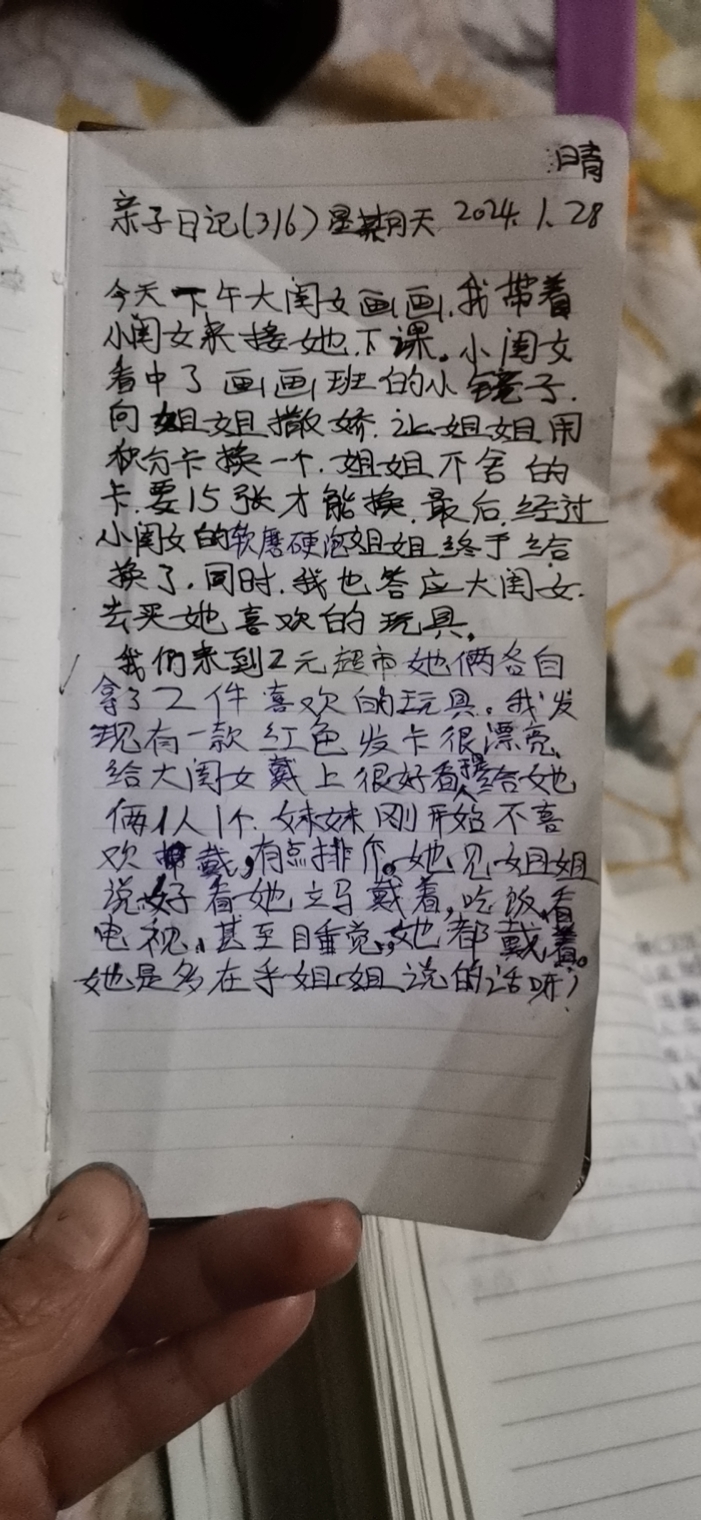 晴
亲子日记(316) 星期天 2024.1.28
今天下午大闺女画画,我带着
小闺女来接她下课。小闺女
看中了画画班的小镜子.
向姐姐撒娇.让姐姐用
积分卡换一个.姐姐不舍的
卡.要15张才能换.最后.经过
小闺女的软磨硬泡姐姐终于给
换了.同时.我也答应大闺女.
去买她喜欢的玩具.
我们来到2元超市她俩各自
拿了2件喜欢的玩具。我发
现有一款红色发卡很漂亮
给大闺女戴上很好看给她
俩1人1个.妹妹刚开始不喜
欢戴,有点排斥。她见姐姐
说好看她立马戴着,吃饭,看
电视、甚至睡觉,她都戴着。
她是多在乎姐姐说的话呀)